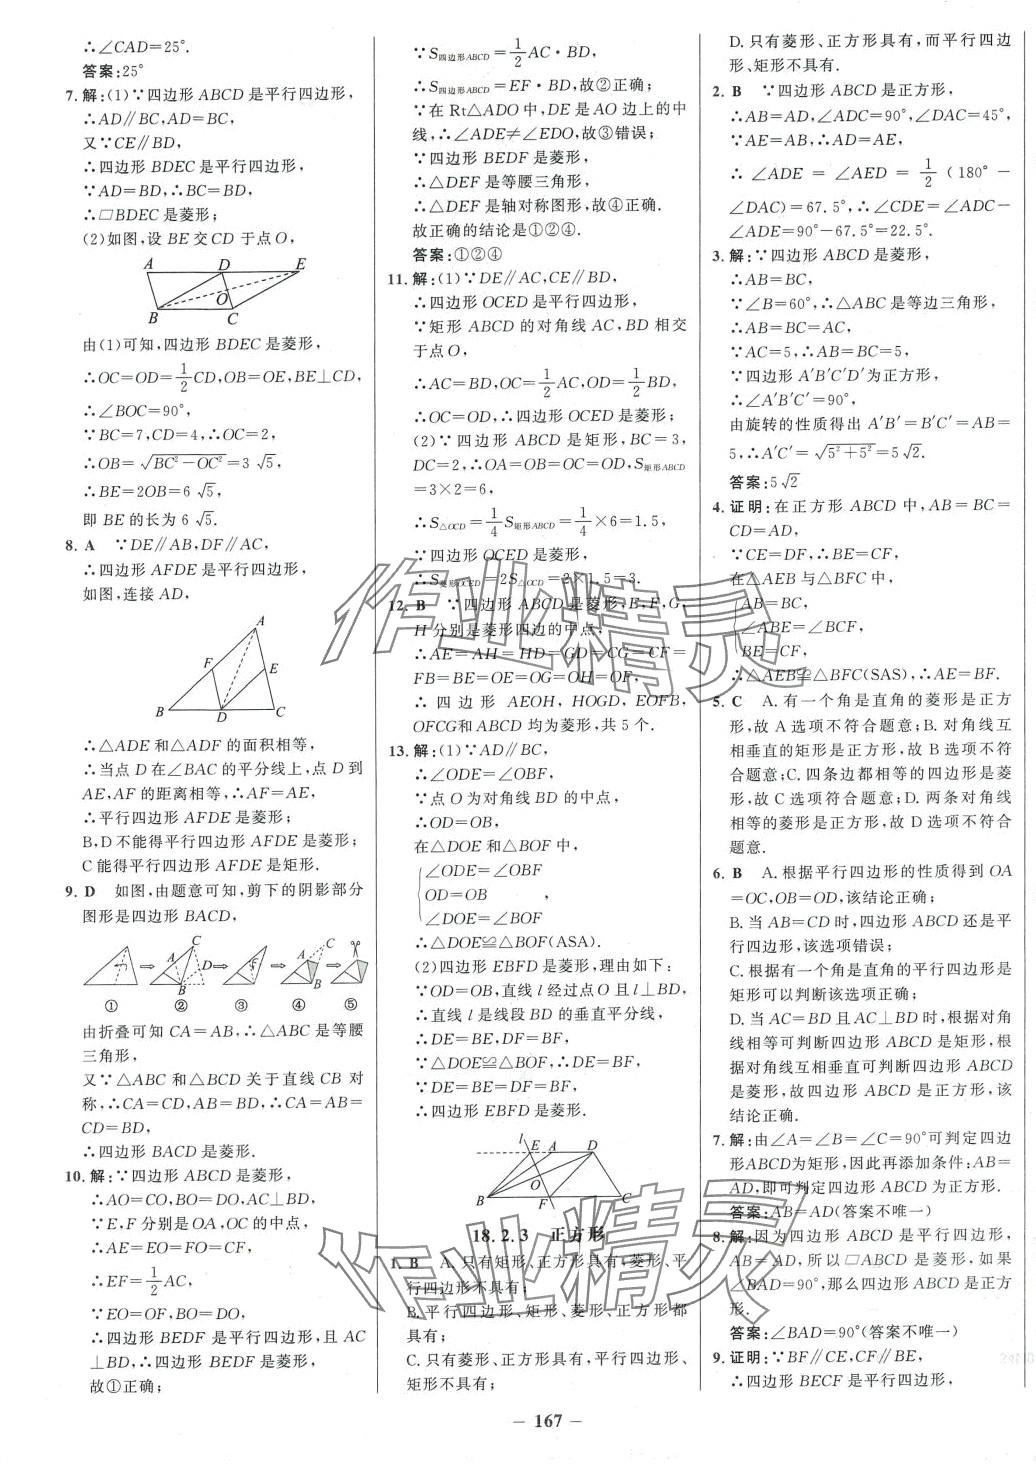 ∴∠CAD=25°.
答案:25°
7. 解:(1)∵四边形 ABCD 是平行四边形,
∴AD∥BC,AD=BC,
又∵CE∥BD,
∴四边形 BDEC 是平行四边形,
∵AD=BD,∴BC=BD,
∴□BDEC 是菱形;
(2)如图,设 BE 交 CD 于点 O,
A D E
O
B C
由(1)可知,四边形 BDEC 是菱形,
∴OC=OD=1/2CD,OB=OE,BE⊥CD,
∴∠BOC=90°,
∵BC=7,CD=4,∴OC=2,
∴OB=√(BC²-OC²)=3√5,
∴BE=2OB=6√5.
即 BE 的长为 6√5.
8. A ∵DE∥AB,DF∥AC,
∴四边形 AFDE 是平行四边形,
如图,连接 AD,
A
F E
B D C
∴△ADE 和△ADF 的面积相等,
∴当点 D 在∠BAC 的平分线上,点 D 到
AE,AF 的距离相等,∴AF=AE,
∴平行四边形 AFDE 是菱形;
B,D 不能得平行四边形 AFDE 是菱形;
C 能得平行四边形 AFDE 是矩形.
9. D 如图,由题意可知,剪下的阴影部分
图形是四边形 BACD,
C C
A D A
B B
① ② ③ ④ ⑤
由折叠可知 CA=AB,∴△ABC 是等腰
三角形,
又∵△ABC 和△BCD 关于直线 CB 对
称,∴CA=CD,AB=BD,∴CA=AB=
CD=BD,
∴四边形 BACD 是菱形.
10. 解:∵四边形 ABCD 是菱形,
∴AO=CO,BO=DO,AC⊥BD,
∵E,F 分别是 OA,OC 的中点,
∴AE=EO=FO=CF,
∴EF=1/2AC,
∵EO=OF,BO=DO,
∴四边形 BEDF 是平行四边形,且 AC
⊥BD,∴四边形 BEDF 是菱形,
故①正确;
∵S四边形ABCD=1/2AC·BD,
∴S四边形ABCD=EF·BD,故②正确;
∵在 Rt△ADO 中,DE 是 AO 边上的中
线,∴∠ADE≠∠EDO,故③错误;
∵四边形 BEDF 是菱形,
∴△DEF 是等腰三角形,
∴△DEF 是轴对称图形,故④正确.
故正确的结论是①②④.
答案:①②④
11. 解:(1)∵DE∥AC,CE∥BD,
∴四边形 OCED 是平行四边形,
∵矩形 ABCD 的对角线 AC,BD 相交
于点 O,
∴AC=BD,OC=1/2AC,OD=1/2BD,
∴OC=OD,∴四边形 OCED 是菱形;
(2)∵四边形 ABCD 是矩形,BC=3,
DC=2,∴OA=OB=OC=OD,S矩形ABCD
=3×2=6,
∴S△OCD=1/4S矩形ABCD=1/4×6=1.5,
∵四边形 OCED 是菱形,
∴S菱形OCED=2S△OCD=2×1.5=3.
12. B ∵四边形 ABCD 是菱形,E,F,G,
H 分别是菱形四边的中点,
∴AE=AH=HD=GD=CG=CF=
FB=BE=OE=OG=OH=OF,
∴四边形 AEOH,HOGD,EOFB,
OFCG和 ABCD 均为菱形,共 5 个.
13. 解:(1)∵AD∥BC,
∴∠ODE=∠OBF,
∵点 O 为对角线 BD 的中点,
∴OD=OB,
在△DOE 和△BOF 中,
∠ODE=∠OBF
OD=OB ,
∠DOE=∠BOF
∴△DOE≌△BOF(ASA).
(2)四边形 EBFD 是菱形,理由如下:
∵OD=OB,直线 l 经过点 O 且 l⊥BD,
∴直线 l 是线段 BD 的垂直平分线,
∴DE=BE,DF=BF,
∵△DOE≌△BOF,∴DE=BF,
∵DE=BE=DF=BF,
∴四边形 EBFD 是菱形.
l E A D
O
B F C
18.2.3 正方形
1. B A.只有矩形、正方形具有,菱形、平
行四边形不具有;
B.平行四边形、矩形、菱形、正方形都
具有;
C.只有菱形、正方形具有,平行四边形、
矩形不具有;
D.只有菱形、正方形具有,而平行四边
形、矩形不具有.
2. B ∵四边形 ABCD 是正方形,
∴AB=AD,∠ADC=90°,∠DAC=45°,
∵AE=AB,∴AD=AE,
∴∠ADE=∠AED=1/2(180°-
∠DAC)=67.5°,∴∠CDE=∠ADC-
∠ADE=90°-67.5°=22.5°.
3. 解:∵四边形 ABCD 是菱形,
∴AB=BC,
∵∠B=60°,∴△ABC 是等边三角形,
∴AB=BC=AC,
∵AC=5,∴AB=BC=5,
∵四边形 A′B′C′D′为正方形,
∴∠A′B′C′=90°,
由旋转的性质得出 A′B′=B′C′=AB=
5,∴A′C′=√(5²+5²)=5√2.
答案:5√2
4. 证明:在正方形 ABCD 中,AB=BC=
CD=AD,
∵CE=DF,∴BE=CF,
在△AEB 与△BFC 中,
AB=BC,
∠ABE=∠BCF,
BE=CF,
∴△AEB≌△BFC(SAS),∴AE=BF.
5. C A.有一个角是直角的菱形是正方
形,故 A 选项不符合题意;B.对角线互
相垂直的矩形是正方形,故 B 选项不符
合题意;C.四条边都相等的四边形是菱
形,故 C 选项符合题意;D.两条对角线
相等的菱形是正方形,故 D 选项不符合
题意.
6. B A.根据平行四边形的性质得到 OA
=OC,OB=OD,该结论正确;
B.当 AB=CD 时,四边形 ABCD 还是平
行四边形,该选项错误;
C.根据有一个角是直角的平行四边形是
矩形可以判断该选项正确;
D.当 AC=BD 且 AC⊥BD 时,根据对角
线相等可判断四边形 ABCD 是矩形,根
据对角线互相垂直可判断四边形 ABCD
是菱形,故四边形 ABCD 是正方形,该
结论正确.
7. 解:由∠A=∠B=∠C=90°可判定四边
形ABCD为矩形,因此再添加条件:AB=
AD,即可判定四边形 ABCD 为正方形.
答案:AB=AD(答案不唯一)
8. 解:因为四边形 ABCD 是平行四边形,
AB=AD,所以□ABCD 是菱形,如果
∠BAD=90°,那么四边形 ABCD 是正方
形.
答案:∠BAD=90°(答案不唯一)
9. 证明:∵BF∥CE,CF∥BE,
∴四边形 BECF 是平行四边形,
— 167 —
作业精灵
作业精灵